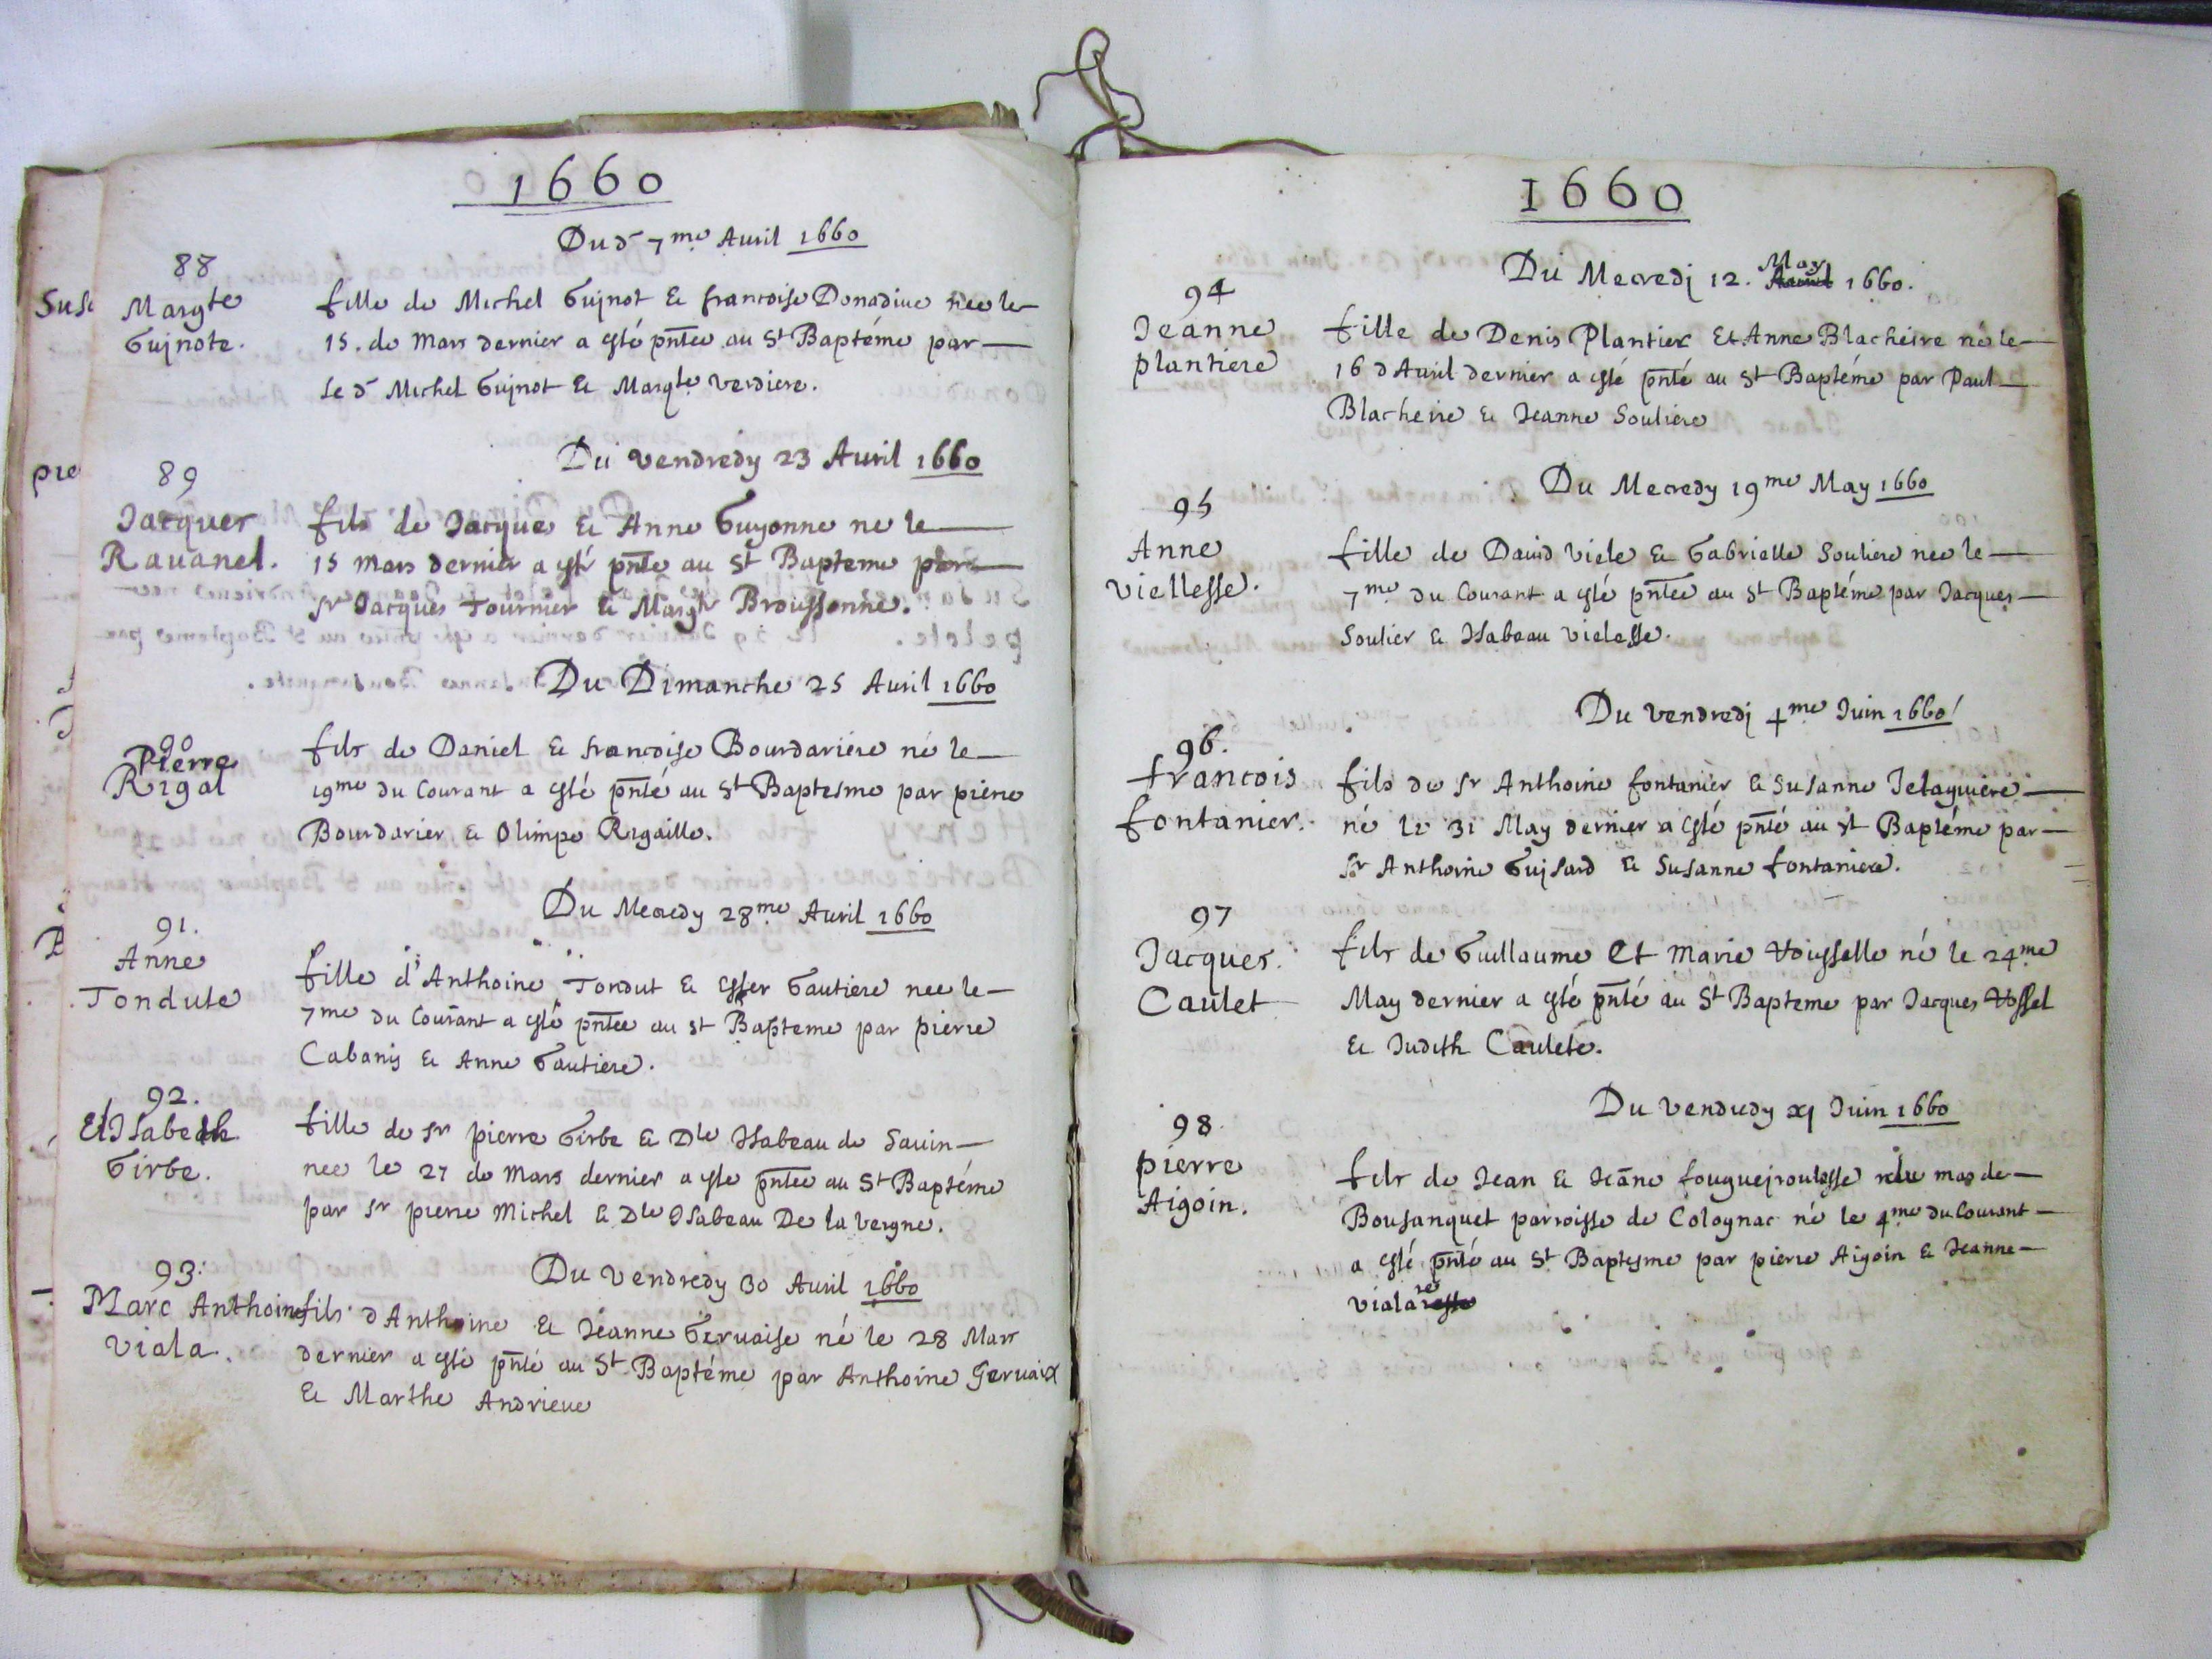 1660
Dud 7me Auril 1660
88
Margte
Gujnote.
fille de Michel Gujnot & francoise Donadiue nee le
15. de Mars dernier a esté pntee au St Baptéme par
Le d Michel Gujnot & Margte verdiere.
Du vendredy 23 Auril 1660
89
Jacques
Rauanel.
fils de Jacques & Anne Guyonne ne le
15 Mars dernier a esté pnte au St Bapteme par
sr Jacques Tournier & Margte Broussonne.
Du Dimanche 25 Auril 1660
90
Pierre
Rigal
fils de Daniel & francoise Bourdariere né le
19me du Courant a esté pnté au St Baptesme par pierre
Bourdarier & Olimpe Rigaille.
Du Mecredy 28me Auril 1660
91.
Anne
Tondute
fille d'Anthoine Tondut & Ester Gautiere nee le
7me du Courant a esté pntee au st Bapteme par pierre
Cabanis & Anne Gautiere.
92.
Elisabeth
Girbe.
fille de sr pierre Girbe & Dle Isabeau de Sauin
nee le 27 de Mars dernier a este pntee au St Baptéme
par sr pierre Michel & Dle Isabeau De la vergne.
Du Vendredy 30 Auril 1660
93.
Marc Anthoine
Viala.
fils d'Anthoine & Jeanne Geruaise né le 28 Mars
dernier a esté pnté au St Baptéme par Anthoine Geruaix
& Marthe Andrieue
1660
May
Du Mecredj 12. Auril 1660.
94
Jeanne
plantiere
fille de Denis Plantier Et Anne Blacheire né le
16 d'Auril dernier a esté pnté au St Baptéme par Paul
Blacheire & Jeanne Souliere
Du Mecredy 19me May 1660
95
Anne
viellesse.
fille de Dauid Viele & Gabrielle Souliere nee le
7me du Courant a esté pntee au St Baptéme par Jacques
Soulier & Isabeau vielesse.
Du vendredj 4me Juin 1660
96.
francois
fontanier.
fils de sr Anthoine fontanier & Susanne
né le 31 May dernier a esté pnté au st Baptéme par
sr Anthoine Guisard & Susanne fontaniere.
97
Jacques
Caulet
fils de Guillaume Et Marie né le 24me
May dernier a esté pnté au St Bapteme par Jacques
& Judith Caulete.
Du Vendredy xj Juin 1660
98.
pierre
Aigoin.
fils de Jean & Jeane fougueiroulesse du mas de
Bousanquet parroisse de Colognac né le 4me du Courant
a esté pnté au St Baptesme par pierre Aigoin & Jeanne
vialare